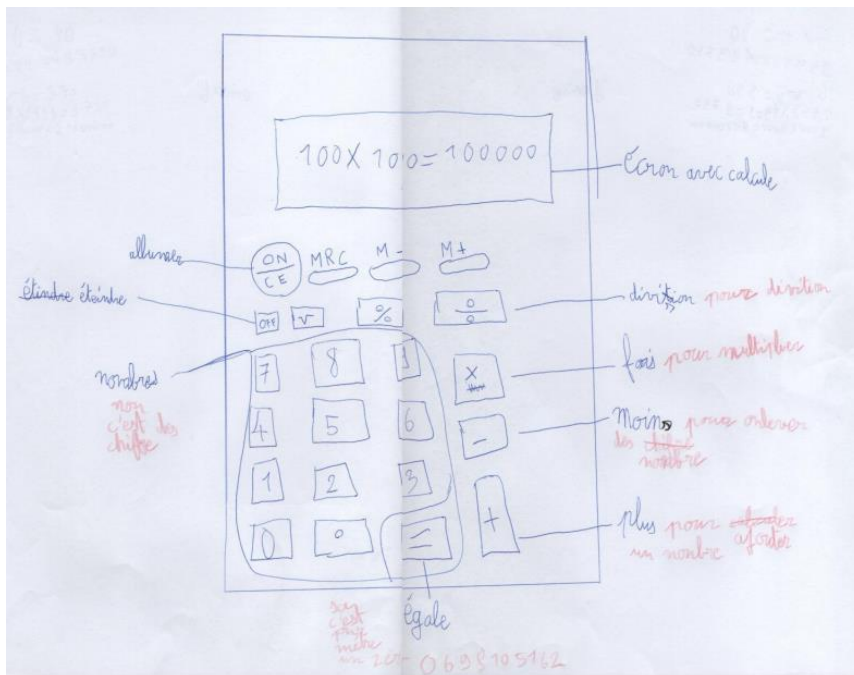 100X100=100000
Écran avec calcule
allumer
ON
CE
MRC
M-
M+
étindre éteindre
OFF
√
%
÷
divition pour divition
nombres
non
c'est des
chiffre
7
8
9
x
fois pour multiplier
4
5
6
-
Moins pour enlever
des
nombre
1
2
3
+
plus pour
ajouter
un nombre
0
=
égale
c'est
pour
metre
un zéro